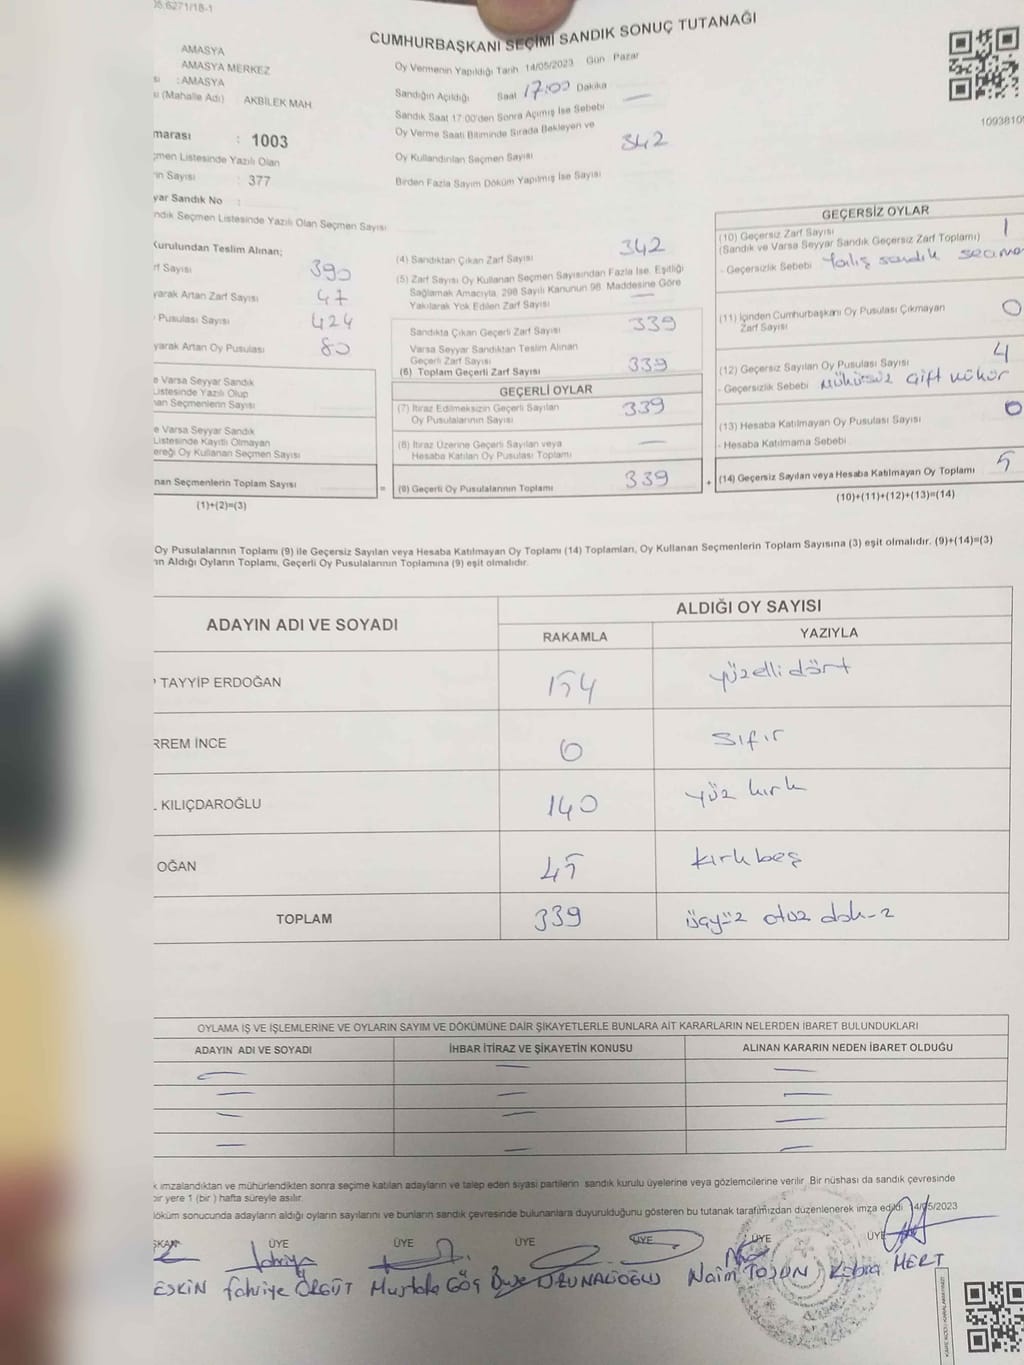 05.6271/18-1
CUMHURBAŞKANI SEÇİMİ SANDIK SONUÇ TUTANAĞI
AMASYA
AMASYA MERKEZ
: AMASYA
(Mahalle Adı) : AKBİLEK MAH
marası : 1003
çmen Listesinde Yazılı Olan
in Sayısı : 377
yar Sandık No :
ndık Seçmen Listesinde Yazılı Olan Seçmen Sayısı
Oy Vermenin Yapıldığı Tarih 14/05/2023 Gün Pazar
Sandığın Açıldığı Saat 17:00 Dakika
Sandık Saat 17:00'den Sonra Açımış İse Sebebi —
Oy Verme Saati Bitiminde Sırada Bekleyen ve
Oy Kullandırılan Seçmen Sayısı 342
Birden Fazla Sayım Döküm Yapılmış İse Sayısı
1093810
Kurulundan Teslim Alınan;
rf Sayısı 390
yarak Artan Zarf Sayısı 47
Pusulası Sayısı 424
yarak Artan Oy Pusulası 80
e Varsa Seyyar Sandık
Listesinde Yazılı Olup
nan Seçmenlerin Sayısı
e Varsa Seyyar Sandık
Listesinde Kayıtlı Olmayan
ereği Oy Kullanan Seçmen Sayısı
nan Seçmenlerin Toplam Sayısı =
(1)+(2)=(3)
(4) Sandıktan Çıkan Zarf Sayısı 342
(5) Zarf Sayısı Oy Kullanan Seçmen Sayısından Fazla İse, Eşitliği
Sağlamak Amacıyla, 298 Sayılı Kanunun 98. Maddesine Göre
Yakılarak Yok Edilen Zarf Sayısı —
Sandıkta Çıkan Geçerli Zarf Sayısı 339
Varsa Seyyar Sandıktan Teslim Alınan
Geçerli Zarf Sayısı
(6) Toplam Geçerli Zarf Sayısı 339
GEÇERLİ OYLAR
(7) İtiraz Edilmeksizin Geçerli Sayılan
Oy Pusulalarının Sayısı 339
(8) İtiraz Üzerine Geçerli Sayılan veya
Hesaba Katılan Oy Pusulası Toplamı —
(9) Geçerli Oy Pusulalarının Toplamı 339 +
GEÇERSİZ OYLAR
(10) Geçersiz Zarf Sayısı 1
(Sandık ve Varsa Seyyar Sandık Geçersiz Zarf Toplamı)
- Geçersizlik Sebebi sandık
(11) İçinden Cumhurbaşkanı Oy Pusulası Çıkmayan
Zarf Sayısı 0
(12) Geçersiz Sayılan Oy Pusulası Sayısı 4
- Geçersizlik Sebebi Mühürsüz çift mühür
(13) Hesaba Katılmayan Oy Pusulası Sayısı 0
- Hesaba Katılmama Sebebi
(14) Geçersiz Sayılan veya Hesaba Katılmayan Oy Toplamı 5
(10)+(11)+(12)+(13)=(14)
Oy Pusulalarının Toplamı (9) ile Geçersiz Sayılan veya Hesaba Katılmayan Oy Toplamı (14) Toplamları, Oy Kullanan Seçmenlerin Toplam Sayısına (3) eşit olmalıdır. (9)+(14)=(3)
ın Aldığı Oyların Toplamı, Geçerli Oy Pusulalarının Toplamına (9) eşit olmalıdır.
ADAYIN ADI VE SOYADI ALDIĞI OY SAYISI
RAKAMLA YAZIYLA
P TAYYİP ERDOĞAN 154 yüzelli dört
RREM İNCE 0 sıfır
L KILIÇDAROĞLU 140 yüz kırk
OĞAN 45 kırkbeş
TOPLAM 339 üçyüz otuz dokuz
OYLAMA İŞ VE İŞLEMLERİNE VE OYLARIN SAYIM VE DÖKÜMÜNE DAİR ŞİKAYETLERLE BUNLARA AİT KARARLARIN NELERDEN İBARET BULUNDUKLARI
ADAYIN ADI VE SOYADI İHBAR İTİRAZ VE ŞİKAYETİN KONUSU ALINAN KARARIN NEDEN İBARET OLDUĞU
— — —
— — —
— — —
— — —
k imzalandıktan ve mühürlendikten sonra seçime katılan adayların ve talep eden siyasi partilerin sandık kurulu üyelerine veya gözlemcilerine verilir. Bir nüshası da sandık çevresinde
bir yere 1 (bir ) hafta süreyle asılır.
döküm sonucunda adayların aldığı oyların sayılarını ve bunların sandık çevresinde bulunanlara duyurulduğunu gösteren bu tutanak tarafımızdan düzenlenerek imza edildi. 14/05/2023
ŞKAN ÜYE ÜYE ÜYE ÜYE ÜYE ÜYE
ESKİN Fahriye ÖRGÜT Mustafa GÖÇ Naim TOSUN Kübra MERT